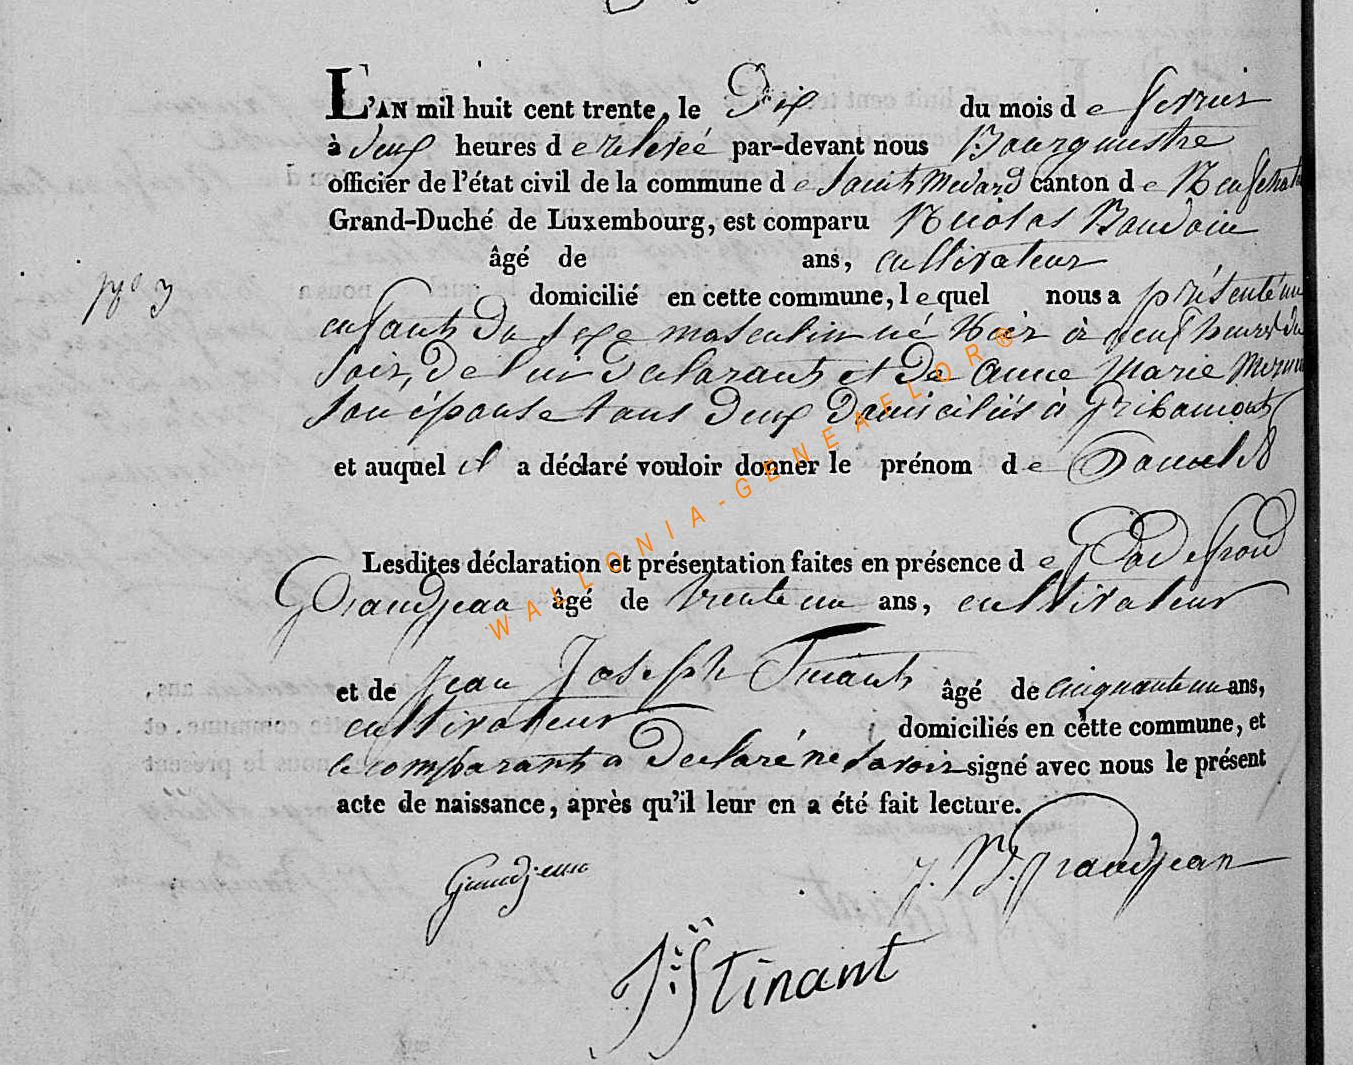 L'AN mil huit cent trente, le Dix du mois de fevrier
à deux heures de relevée par-devant nous Bourgmestre
officier de l'état civil de la commune de Saint Medard canton de Neufchat
Grand-Duché de Luxembourg, est comparu Nicolas Baudoin
âgé de ans, cultivateur
N° 3
domicilié en cette commune, lequel nous a présenté un
enfant du sexe masculin né hier à neuf heures du
soir, de lui declarant et de Anne Marie
son épouse tous deux domiciliés à Gribomont
et auquel il a déclaré vouloir donner le prénom de
Lesdites déclaration et présentation faites en présence de Godefroid
Grandjean âgé de trente un ans, cultivateur
et de Jean Joseph Tinant âgé de cinquante un ans,
cultivateur domiciliés en cette commune, et
le comparant a declaré ne savoir signé avec nous le présent
acte de naissance, après qu'il leur en a été fait lecture.
Grandjean J. B. Grandjean
J: J Tinant
WALLONIA-GENEAFLOR®